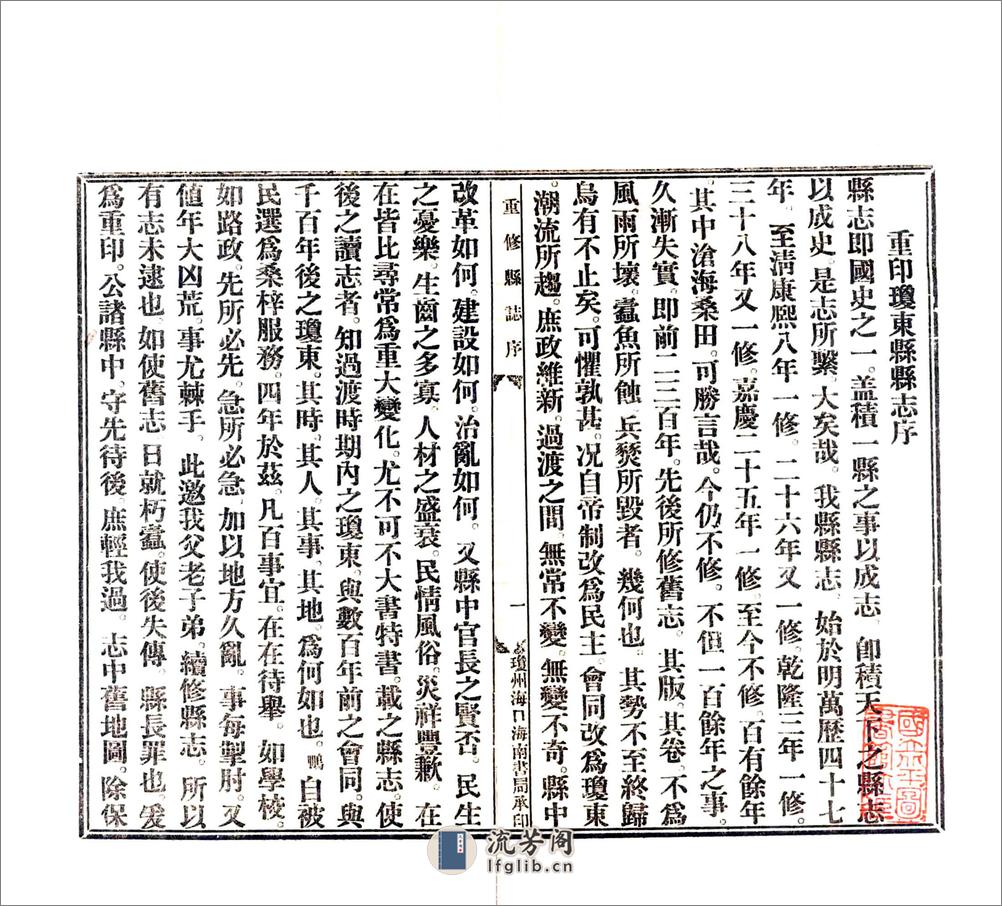 重印瓊東縣縣志序
縣志即國史之一。蓋積一縣之事以成志。卽積天下之縣志
以成史。是志所繫。大矣哉。我縣縣志。始於明萬歷四十七
年。至清康熙八年一修。二十六年又一修。乾隆三年一修。
三十八年又一修。嘉慶二十五年一修。至今不修。百有餘年
其中滄海桑田。可勝言哉。今仍不修。不但一百餘年之事。
久漸失實。即前二三百年。先後所修舊志。其版。其卷。不爲
風雨所壞。蠹魚所蝕。兵燹所毀者。幾何也。其勢不至終歸
烏有不止矣。可懼孰甚。况自帝制改爲民主。會同改爲瓊東
。潮流所趨。庶政維新。過渡之間。無常不變。無變不奇。縣中
重修縣誌序
一
瓊州海口海南書局承印
改革如何。建設如何。治亂如何。又縣中官長之賢否。民生
之憂樂。生齒之多寡。人材之盛衰。民情風俗。災祥豐歉。在
在皆比尋常爲重大變化。尤不可不大書特書。載之縣志。使
後之讀志者。知過渡時期內之瓊東。與數百年前之會同。與
千百年後之瓊東。其時。其人。其事。其地。爲何如也。鴨自被
民選爲桑梓服務。四年於茲。凡百事宜。在在待舉。如學校。
如路政。先所必先。急所必急。加以地方久亂。事每掣肘。又
値年大凶荒。事尤棘手。此邀我父老子弟。續修縣志。所以
有志未逮也。如使舊志。日就朽蠹。使後失傳。縣長罪也。爰
爲重印。公諸縣中。守先待後。庶輕我過。志中舊地圖。除保
流芳阁
lfglib.cn